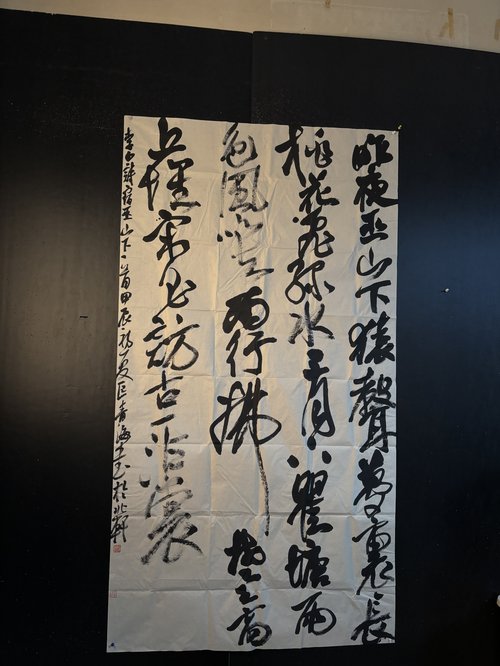 昨夜巫山下猿聲夢裏長
桃花飛綠水三月下瞿塘雨
色風吹去南行拂楚王高
丘懷宋玉訪古一沾裳
李白詩宿巫山下一首甲辰初夏